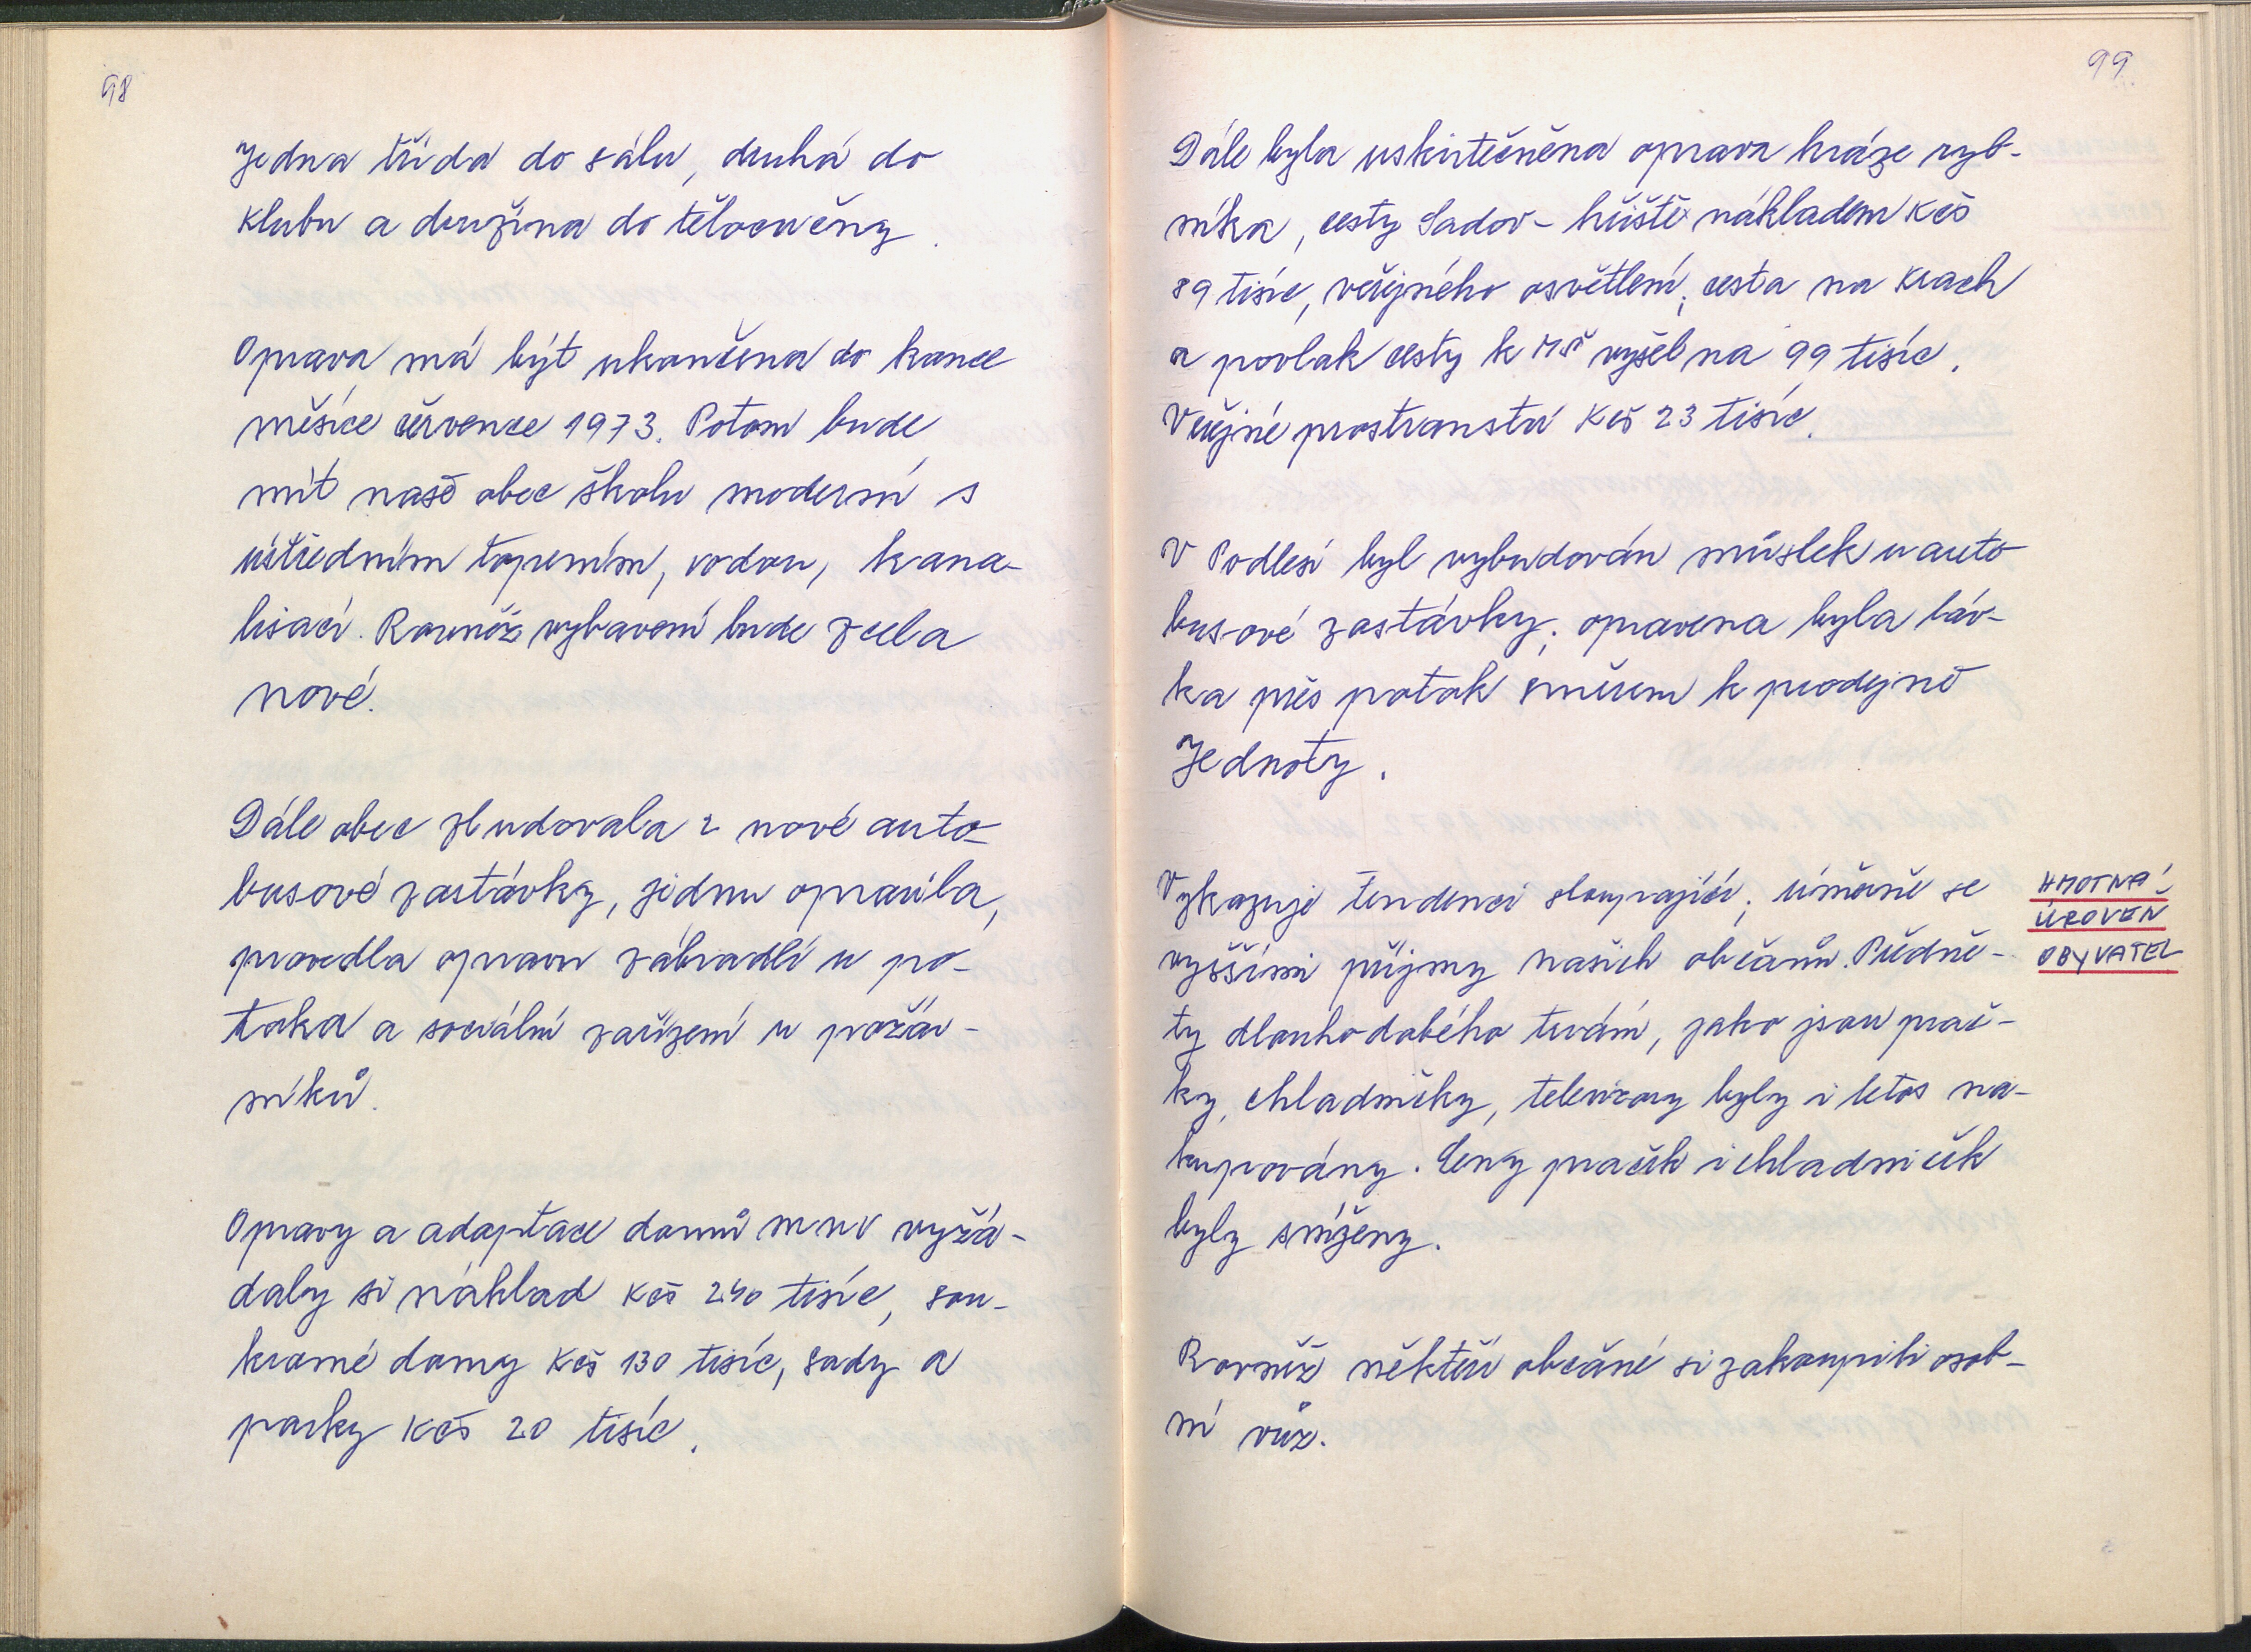 98
Jedna třída do sálu, druhá do
klubu a družina do tělocvičny.
Oprava má být ukončena do konce
měsíce července 1973. Potom bude
mít naše obec školu moderní s
ústředním topením, vodou, kana-
lisací. Rovněž vybavení bude zcela
nové.
Dále obec zbudovala 2 nové auto-
busové zastávky, jednu opravila,
provedla opravu zábradlí u po-
toka a sociální zařízení u požár-
níků.
Opravy a adaptace domů MNV vyžá-
daly si náklad Kčs 240 tisíc, sou-
kromé domy Kčs 130 tisíc, sady a
parky Kčs 20 tisíc.
99
Dále byla uskutečněna oprava hráze ryb-
níka, cesty Sadov - hřiště nákladem Kčs
89 tisíc, veřejného osvětlení, cesta na krach
a povlak cesty k MŠ vyšel na 99 tisíc.
Veřejné prostranství Kčs 23 tisíc.
V Podlesí byl vybudován můstek u auto
busové zastávky, opravena byla láv-
ka přes potok směrem k prodejně
Jednoty.
Vykazuje tendenci stoupající, úměrně se
vyššími příjmy našich občanů. Předmě-
ty dlouhodobého trvání, jako jsou prač-
ky, chladničky, televizory byly i letos na-
kupovány. Ceny praček i chladniček
byly sníženy.
HMOTNÁ
ÚROVEŇ
OBYVATEL
Rovněž někteří občané si zakoupili osob-
ní vůz.